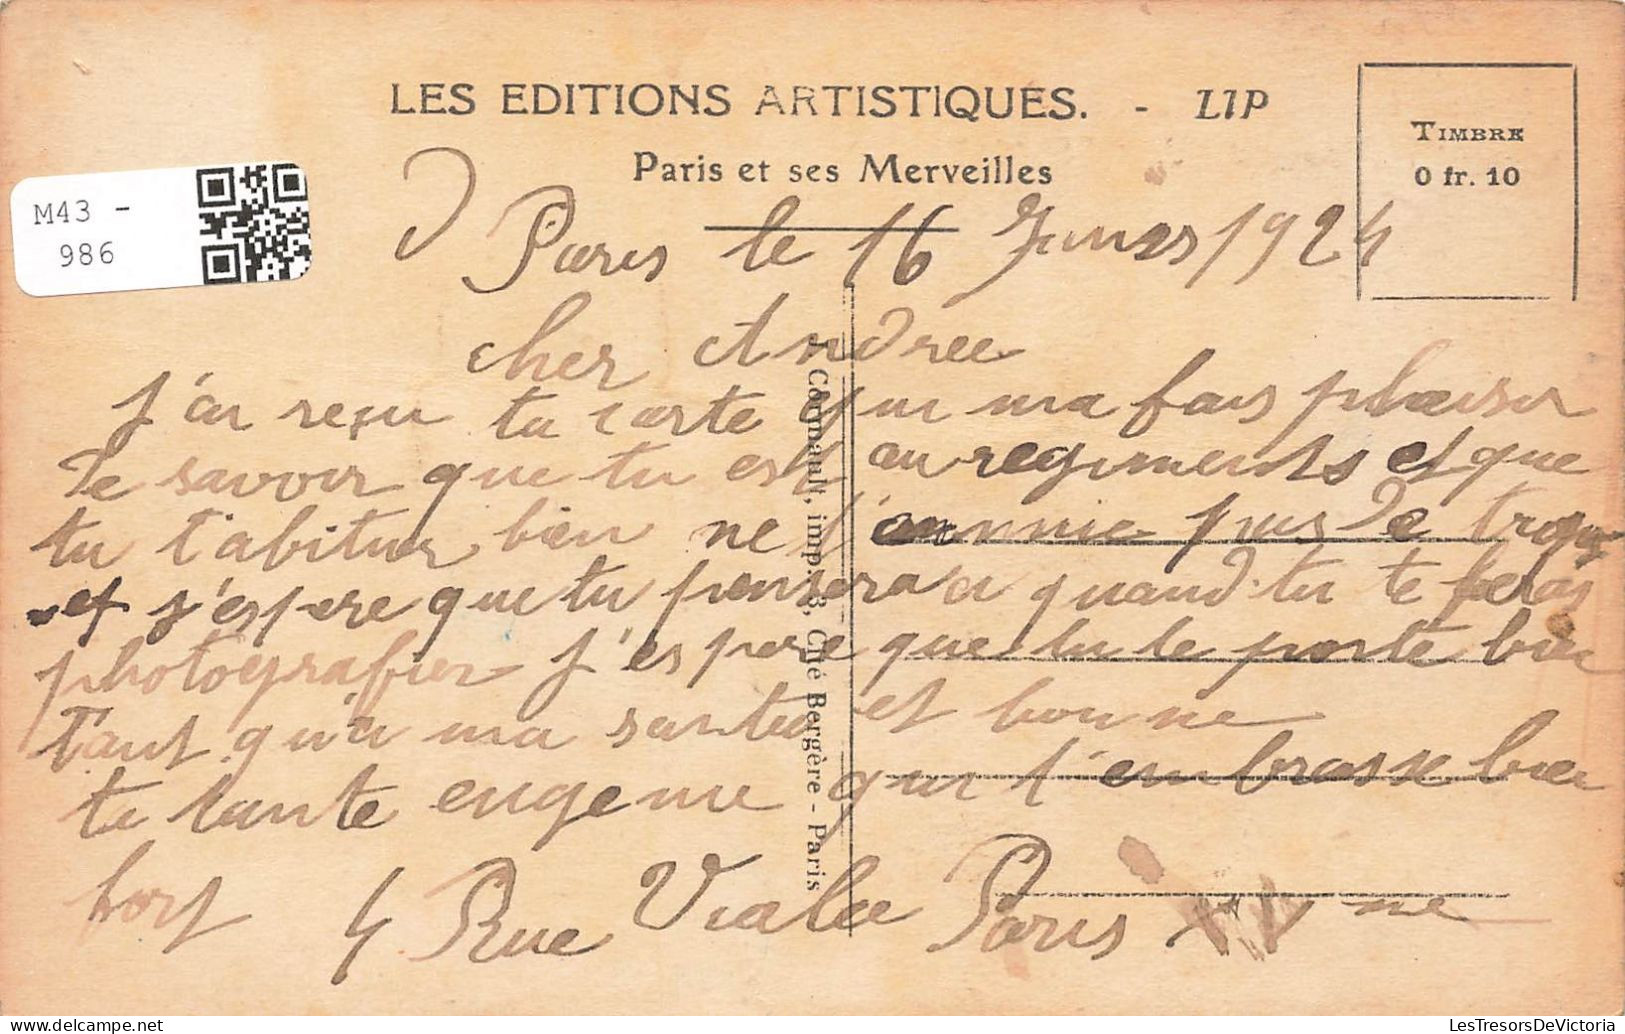 LES EDITIONS ARTISTIQUES. - LIP
Paris et ses Merveilles
TIMBRE
0 fr. 10
M43 -
986
Paris le 16 1924
cher Andree
J'ai reçu ta carte qui ma fais plaisir
de savoir que tu est au regiments et que
tu t'abitue bien ne t'ennuie pas de trop
et j'espere que tu pensera a quand tu te feras
photografier j'espere que tu te porte bien
tant qu'a ma santee et bonne
ta tante eugenie qui t'embrasse bien
fort 4 Rue Viala Paris
J. Cormault, imp. 3, Cité Bergère - Paris
LesTresorsDeVictoria